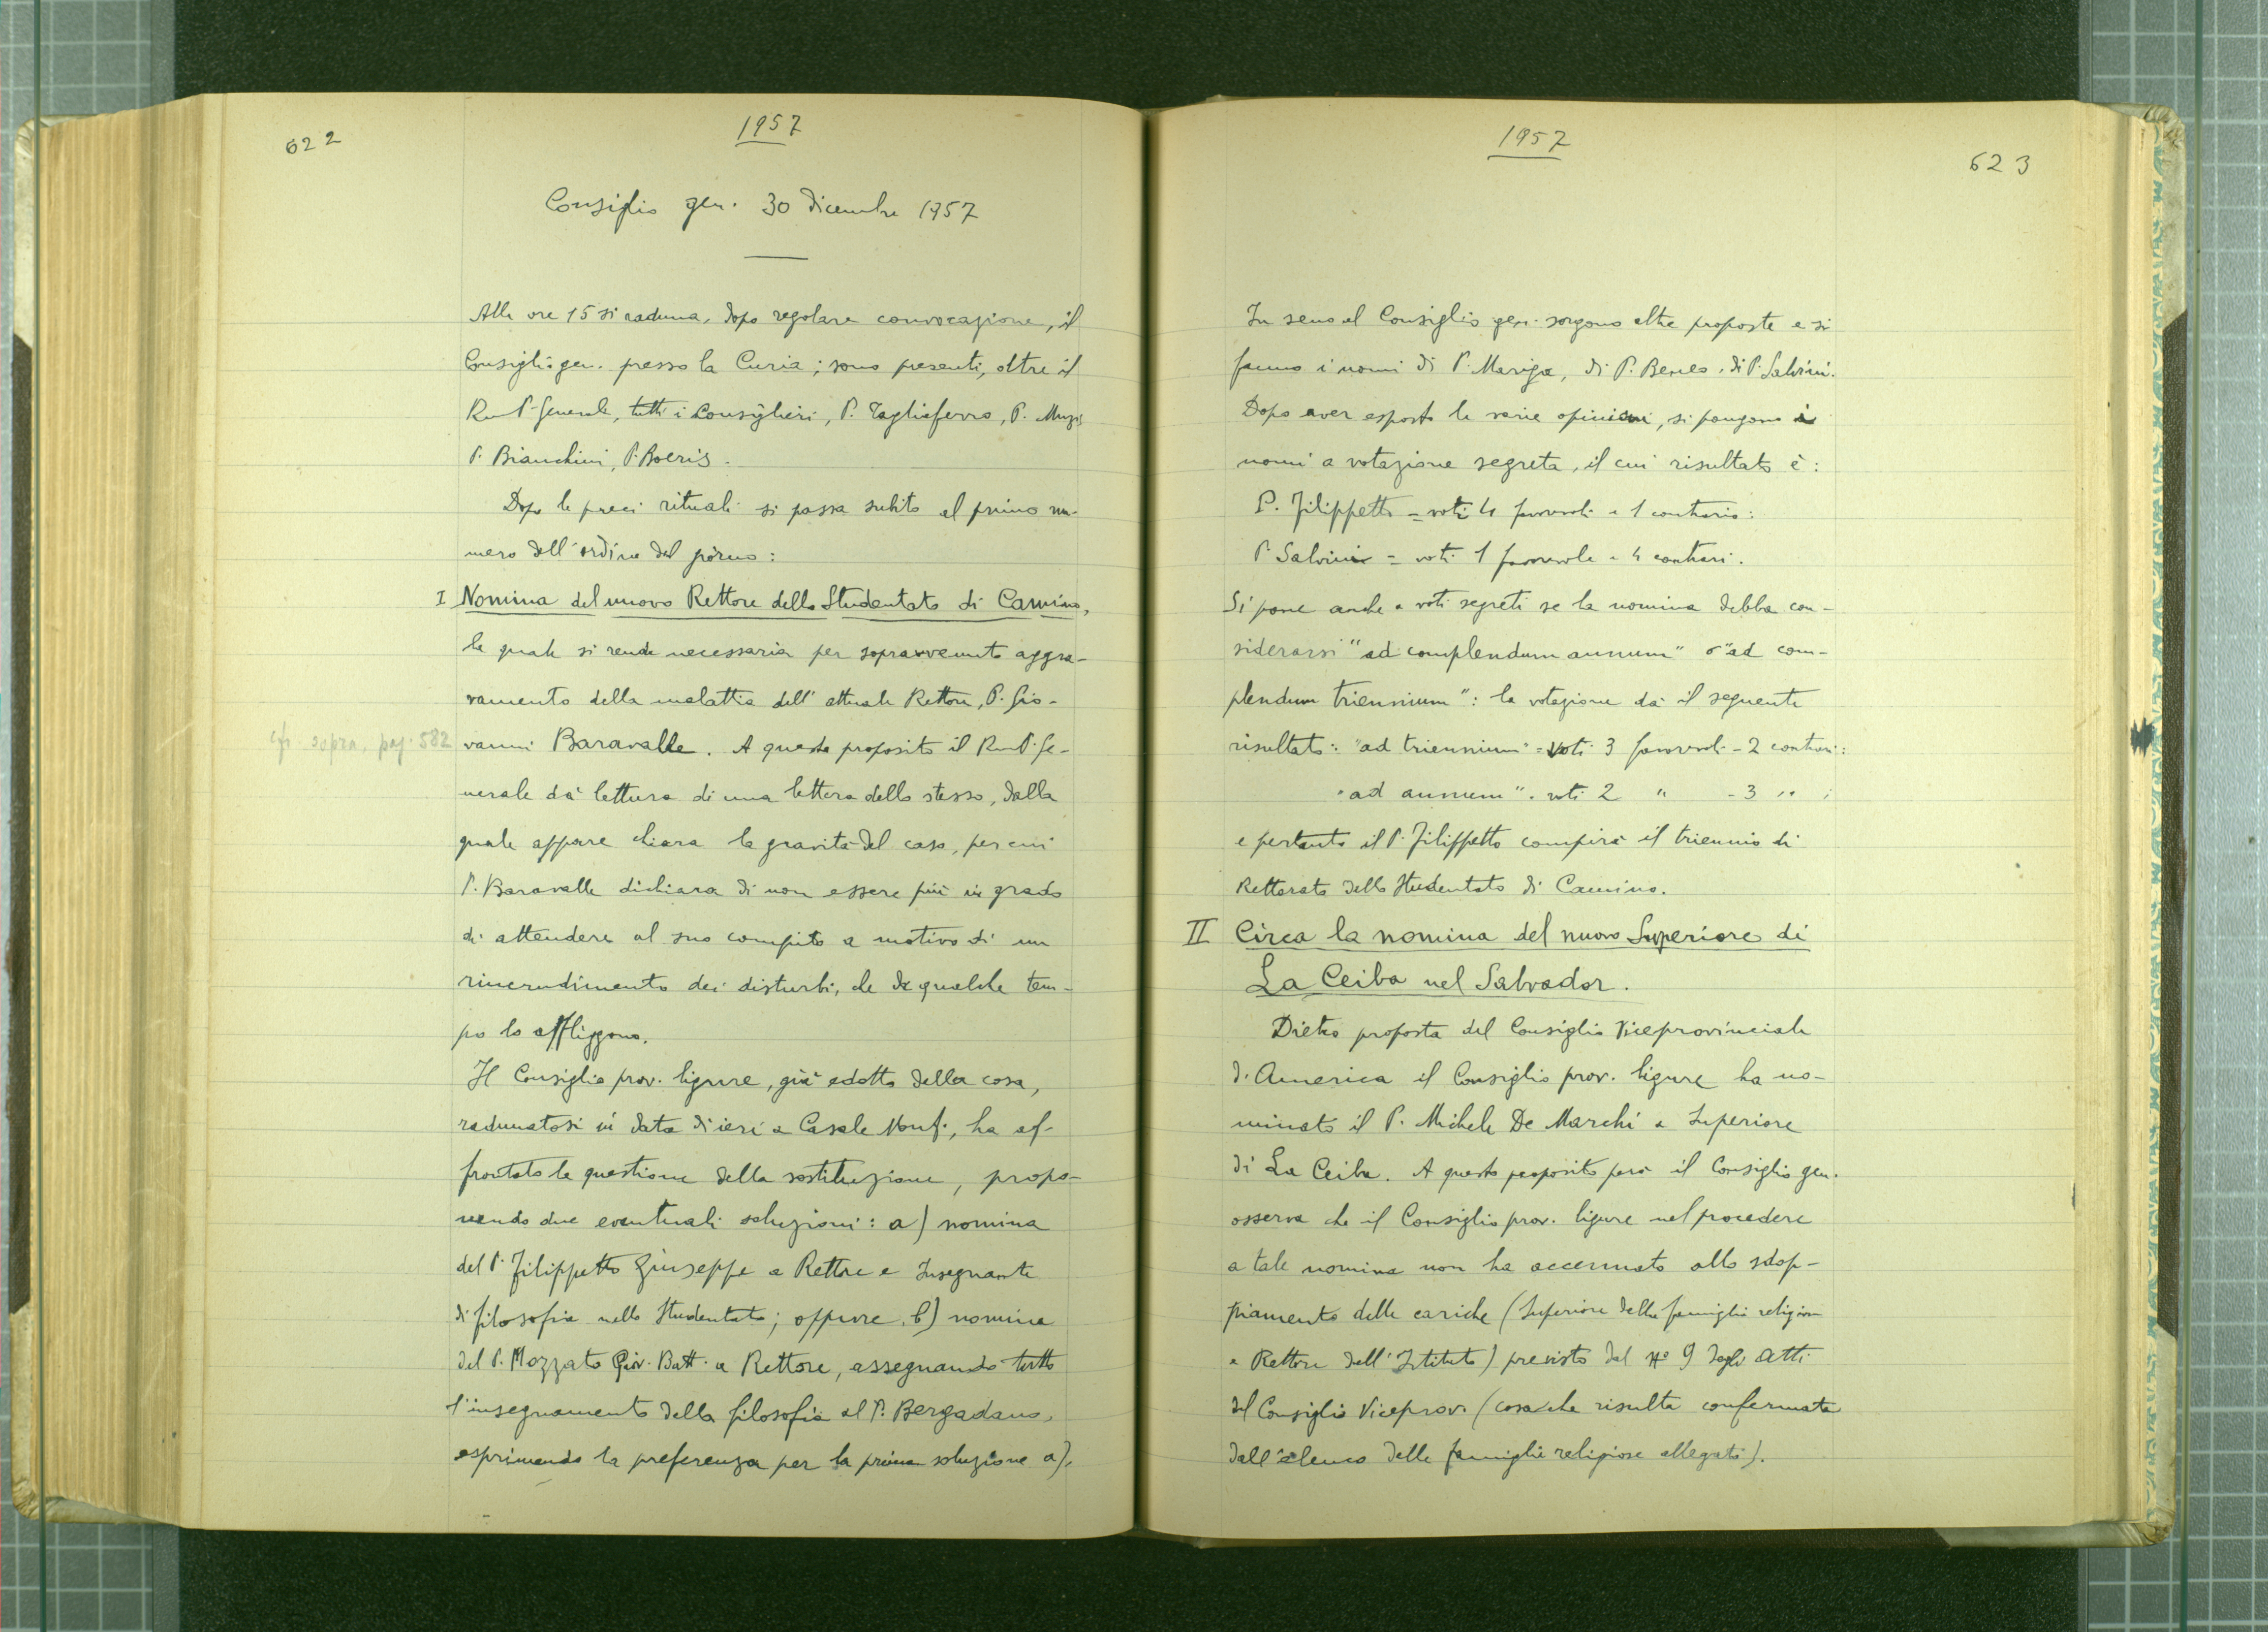 622
1957
Consiglio gen. 30 dicembre 1957
Alle ore 15 si raduna, dopo regolare convocazione, il
Consiglio gen. presso la Curia; sono presenti, oltre il
Rev P. Generale, tutti i Consiglieri, P. Tagliaferro, P. Muzi,
P. Bianchini, P. Boeris.
Dopo le preci rituali si passa subito al primo nu-
mero dell'ordine del giorno:
I Nomina del nuovo Rettore dello Studentato di Camino,
la quale si rende necessaria per sopravvenuto aggra-
vamento della malattia dell'attuale Rettore, P. Gio-
cfr. sopra, pag. 582
vanni Baravalle. A questo proposito il Rev P. Ge-
nerale dà lettura di una lettera dello stesso, dalla
quale appare chiara la gravità del caso, per cui
P. Baravalle dichiara di non essere più in grado
di attendere al suo compito a motivo di un
rincrudimento dei disturbi, che da qualche tem-
po lo affliggono.
Il Consiglio prov. ligure, già edotto della cosa,
radunatosi in data di ieri a Casale Monf., ha af-
frontato la questione della sostituzione, propo-
nendo due eventuali soluzioni: a) nomina
del P. Filippetto Giuseppe a Rettore e Insegnante
di filosofia nello Studentato; oppure, b) nomina
del P. Mozzato Giov. Batt. a Rettore, assegnando tutto
l'insegnamento della filosofia al P. Bergadano,
esprimendo la preferenza per la prima soluzione a).
1957
623
In seno al Consiglio gen. sorgono altre proposte e si
fanno i nomi di P. Mariga, di P. di P. Salvini.
Dopo aver esposto le varie opinioni, si pongono i
nomi a votazione segreta, il cui risultato è:
P. Filippetto = voti 4 favorevoli e 1 contrario:
P. Salvini = voti 1 favorevole e 4 contrari.
Si pone anche a voti segreti se la nomina debba con-
siderarsi "ad complendum annum" o "ad com-
plendum triennium": la votazione dà il seguente
risultato: "ad triennium" = voti 3 favorevoli - 2 contrari:
"ad annum" = voti 2 " - 3 " ;
e pertanto il P. Filippetto compirà il triennio di
Rettorato dello Studentato di Camino.
II Circa la nomina del nuovo Superiore di
La Ceiba nel Salvador.
Dietro proposta del Consiglio Viceprovinciale
d'America il Consiglio prov. ligure ha no-
minato il P. Michele De Marchi a Superiore
di La Ceiba. A questo proposito però il Consiglio gen.
osserva che il Consiglio prov. ligure nel procedere
a tale nomina non ha accennato allo sdop-
piamento delle cariche (Superiore della famiglia religiosa
e Rettore dell'Istituto) previsto dal N° 9 degli Atti
del Consiglio Viceprov. (cosa che risulta confermata
dall'elenco delle famiglie religiose allegato).